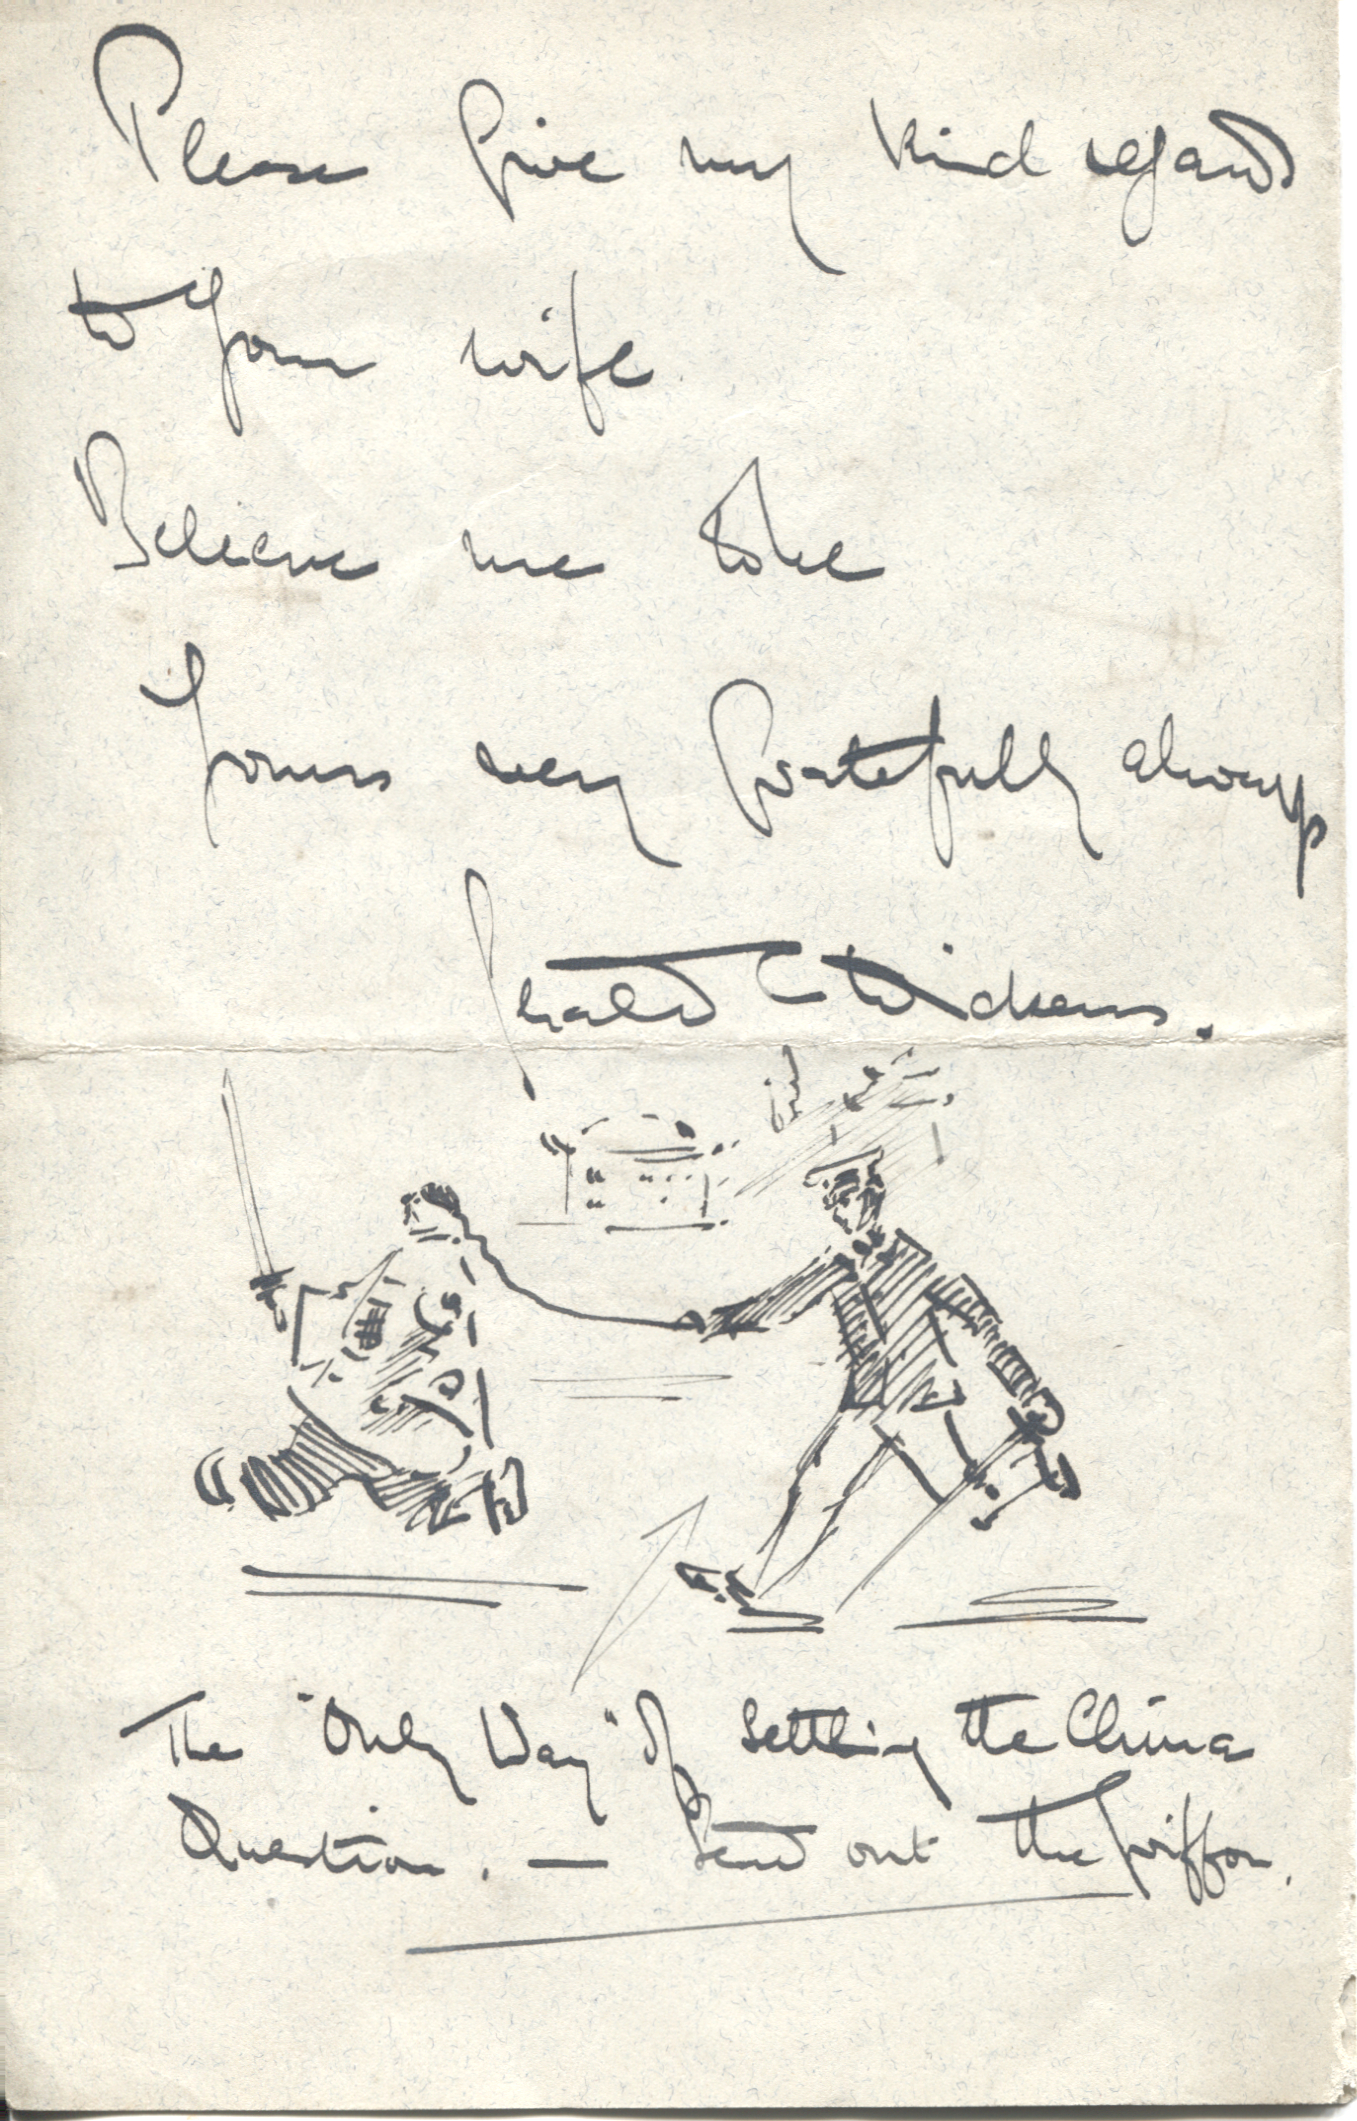 Please give my kind regards
to your wife
Believe me to be
Yours very gratefully always
Gerald C Dickens.
The "Only Way" of settling the China
Question. — Send out the Griffon.